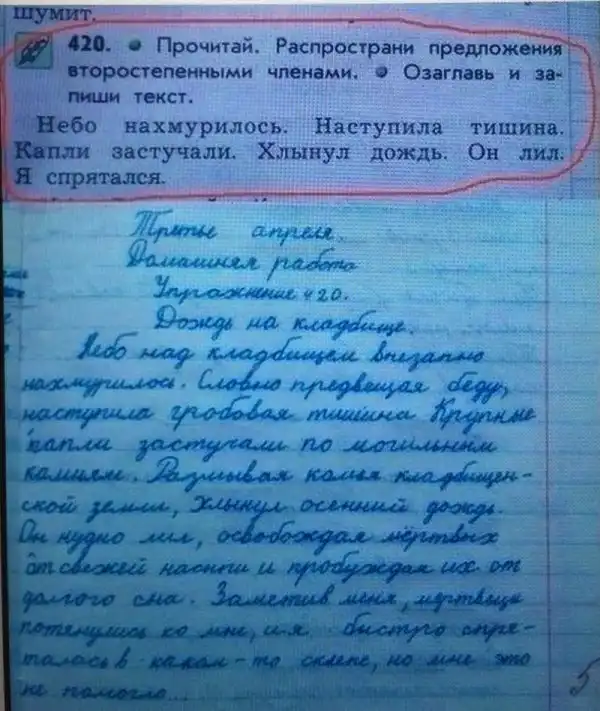 шумит.
420. • Прочитай. Распространи предложения
второстепенными членами. • Озаглавь и за-
пиши текст.
Небо нахмурилось. Наступила тишина.
Капли застучали. Хлынул дождь. Он лил.
Я спрятался.
Третье апреля.
Домашняя работа
Упражнение 420.
Дождь на кладбище.
Небо над кладбищем внезапно
нахмурилось. Словно предвещая беду,
наступила гробовая тишина Крупные
капли застучали по могильным
камням. Размывая комья кладбищен-
ской земли, хлынул осенний дождь.
Он нудно лил, освобождая мёртвых
от свежей насыпи и пробуждая их от
долгого сна. Заметив меня, мертвецы
потянулись ко мне, и я быстро спря-
талась в каком-то склепе, но мне это
не помогло...
5